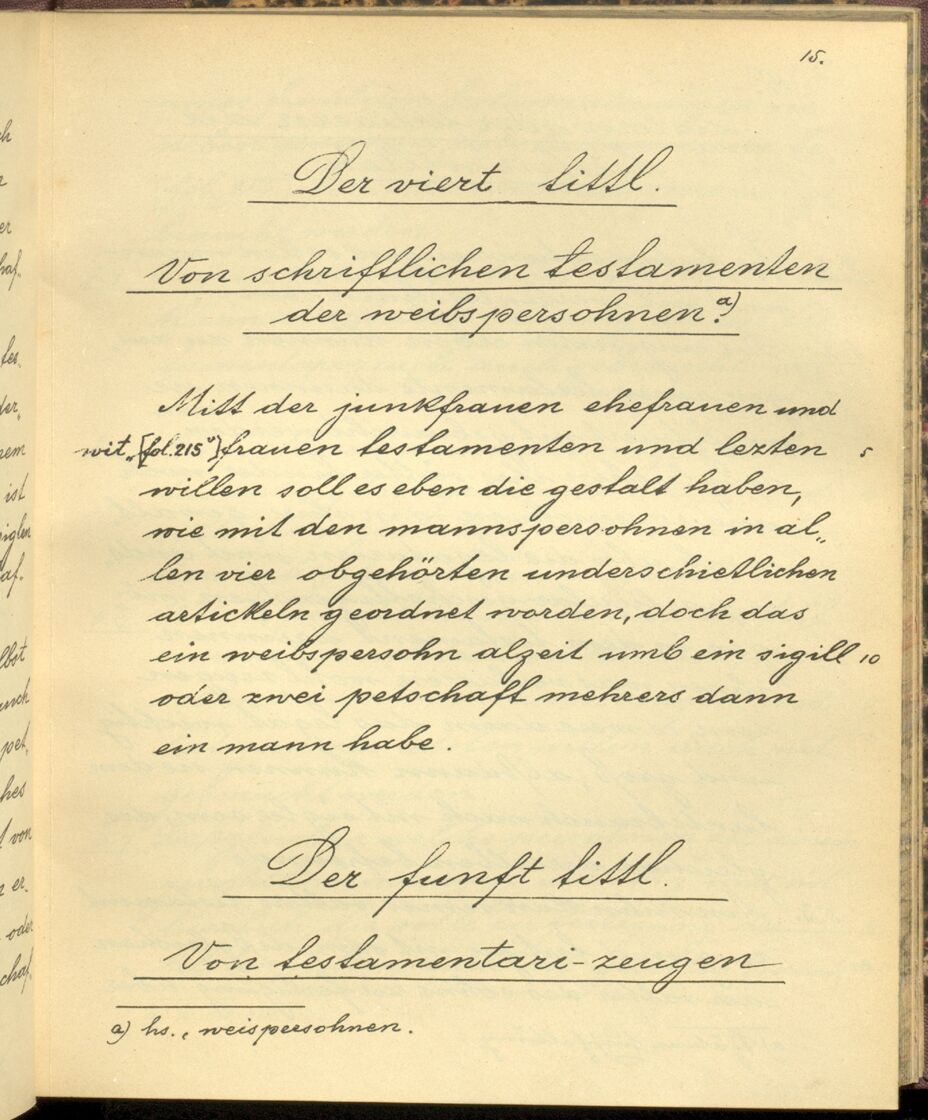 15.
Der viert tittl.
Von schriftlichen testamenten
der weibspersohnen.a)
Mitt der junkfrauen ehefrauen und
wit„[fol. 215v] frauen testamenten und lezten 5
willen soll es eben die gestalt haben,
wie mit den mannspersohnen in al„
len vier obgehörten underschietlichen
artickeln geordnet worden, doch das
ein weibspersohn alzeit umb ein sigill 10
oder zwei petschaft mehrers dann
ein mann habe.
Der funft tittl.
Von testamentari-zeugen
a) hs., weispersohnen.